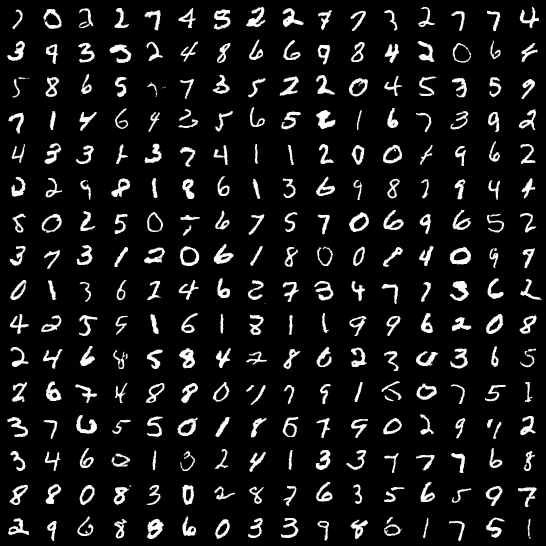 7 0 2 2 7 4 5 2 2 7 7 3 2 7 7 4
3 9 3 5 2 4 8 6 6 9 8 4 2 0 6 4
5 8 6 5 7 3 5 2 2 0 4 5 3 5 9
7 1 4 6 4 3 5 6 5 2 1 6 7 3 9 2
4 3 3 1 3 7 4 1 1 2 0 0 4 9 6 2
2 2 9 8 1 8 6 1 3 6 9 8 7 9 4 4
8 0 2 5 0 7 6 7 5 7 0 6 9 6 5 2
3 7 3 1 2 0 6 1 8 0 0 1 4 0 9 9
0 1 3 6 2 4 6 2 7 3 4 7 7 3 6 2
4 2 5 5 1 6 1 8 1 1 9 9 6 2 0 8
2 4 6 8 5 8 4 2 8 0 2 3 0 3 6 5
2 6 7 4 8 8 0 7 9 1 5 0 7 5 1
3 7 0 5 5 0 1 8 5 7 9 0 2 9 2
3 4 6 0 1 3 2 4 1 3 3 7 7 7 6 8
8 8 0 8 3 0 2 8 7 6 3 5 6 5 9 7
2 9 6 8 8 6 0 3 3 9 8 6 1 7 5 1